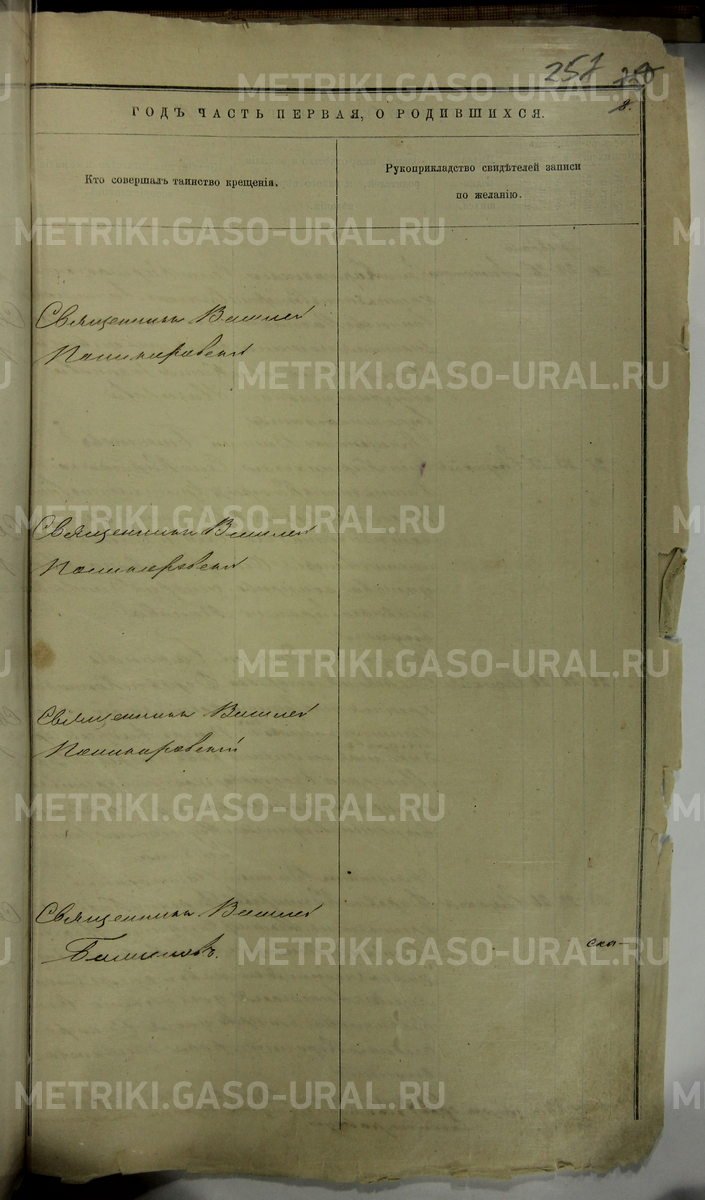 257
ГОДЪ ЧАСТЬ ПЕРВАЯ, О РОДИВШИХСЯ.
Кто совершалъ таинство крещенія.
Рукоприкладство свидѣтелей записи
по желанію.
Священникъ Василій
Священникъ Василій
Священникъ Василій
Священникъ Василій
METRIKI.GASO-URAL.RU
METRIKI.GASO-URAL.RU
METRIKI.GASO-URAL.RU
METRIKI.GASO-URAL.RU
METRIKI.GASO-URAL.RU
METRIKI.GASO-URAL.RU
METRIKI.GASO-URAL.RU
METRIKI.GASO-URAL.RU